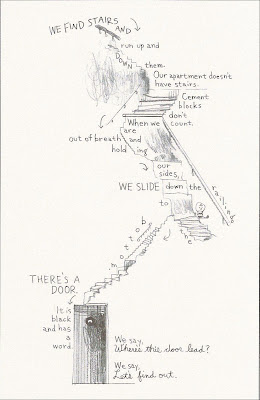 WE FIND STAIRS AND
run up and
DOWN
them.
Our apartment doesn't
have stairs.
Cement
blocks
don't
count.
When we
are
out of breath and
hold ing
our
sides,
WE SLIDE down the railing
to
the
bottom.
THERE'S A
DOOR.
It is
black
and has
a
word.
We say,
Where's this door lead?
We say,
Let's find out.